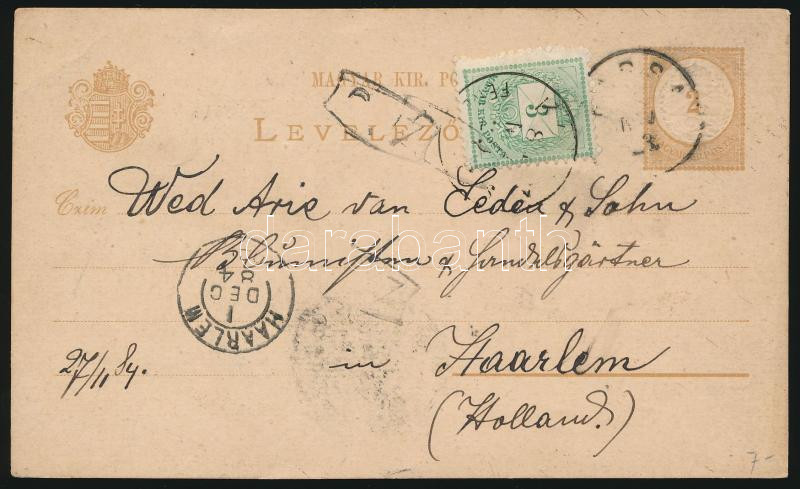 MAGYAR KIR. PO
LEVELEZŐ
2
3
MAGYAR KIR. POSTA
Czim Wed Arie van Eeden & Sohn
Blumisten & Handelsgärtner
in Haarlem
(Holland.)
27/11 84.
HAARLEM
1
DEC
84
darabanth
7-